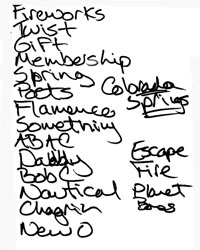 Fireworks
Twist
Gift
Membership
Spring
Poets
Flamenco
Something
ABAC
Daddy
Bob C
Nautical
Chagrin
New O
Colorado
Springs
Escape
Fire
Planet